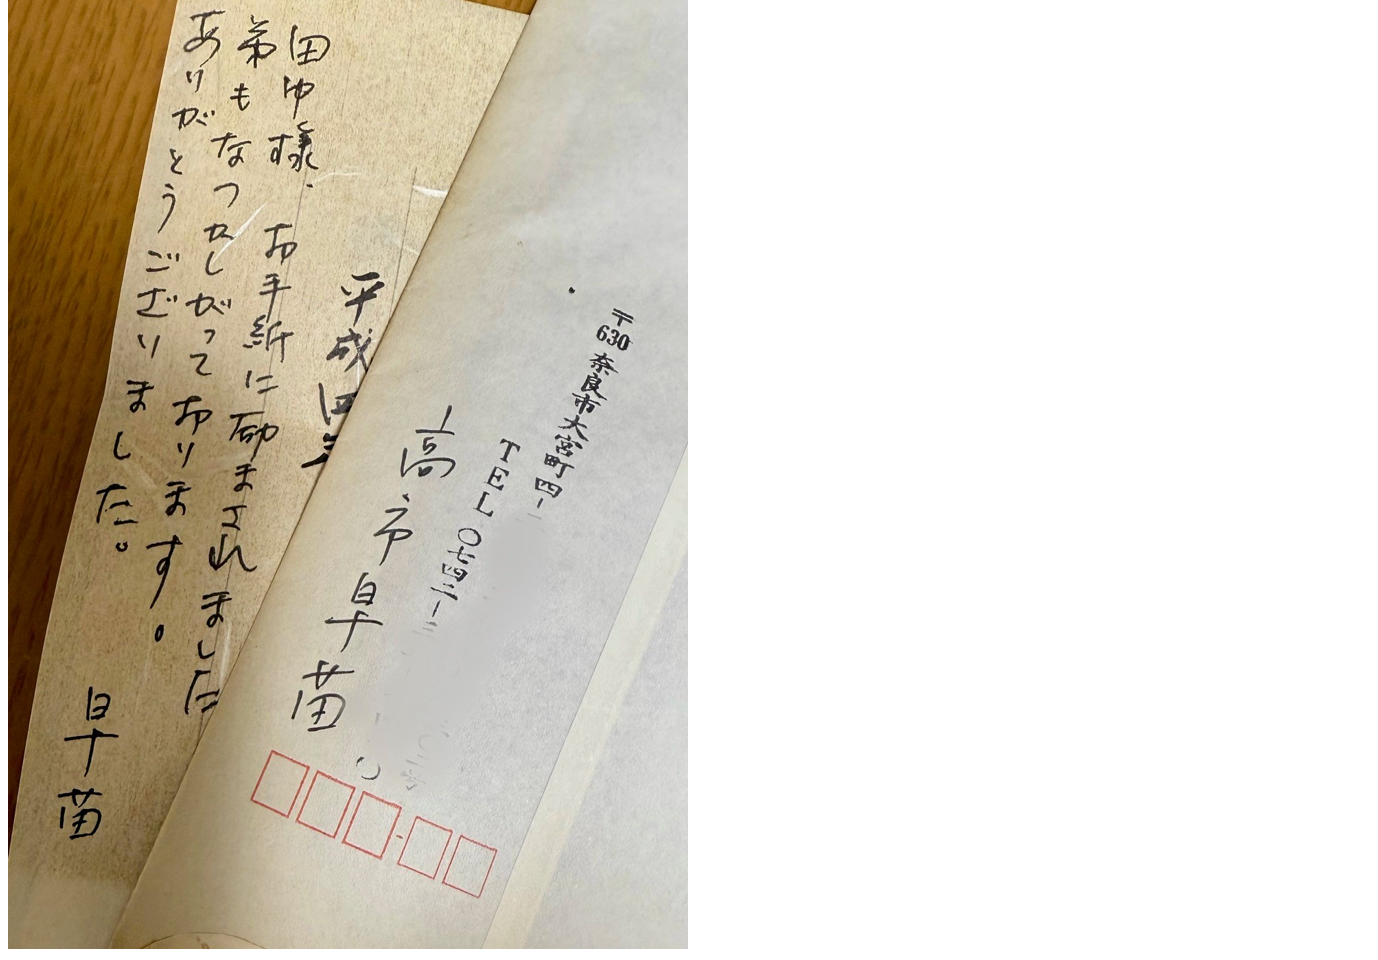 田中様. お手紙に励まされました
弟もなつかしがっております。
ありがとうございました。
早苗
平成四
〒630 奈良市大宮町四-
TEL 〇七四二-
高市早苗